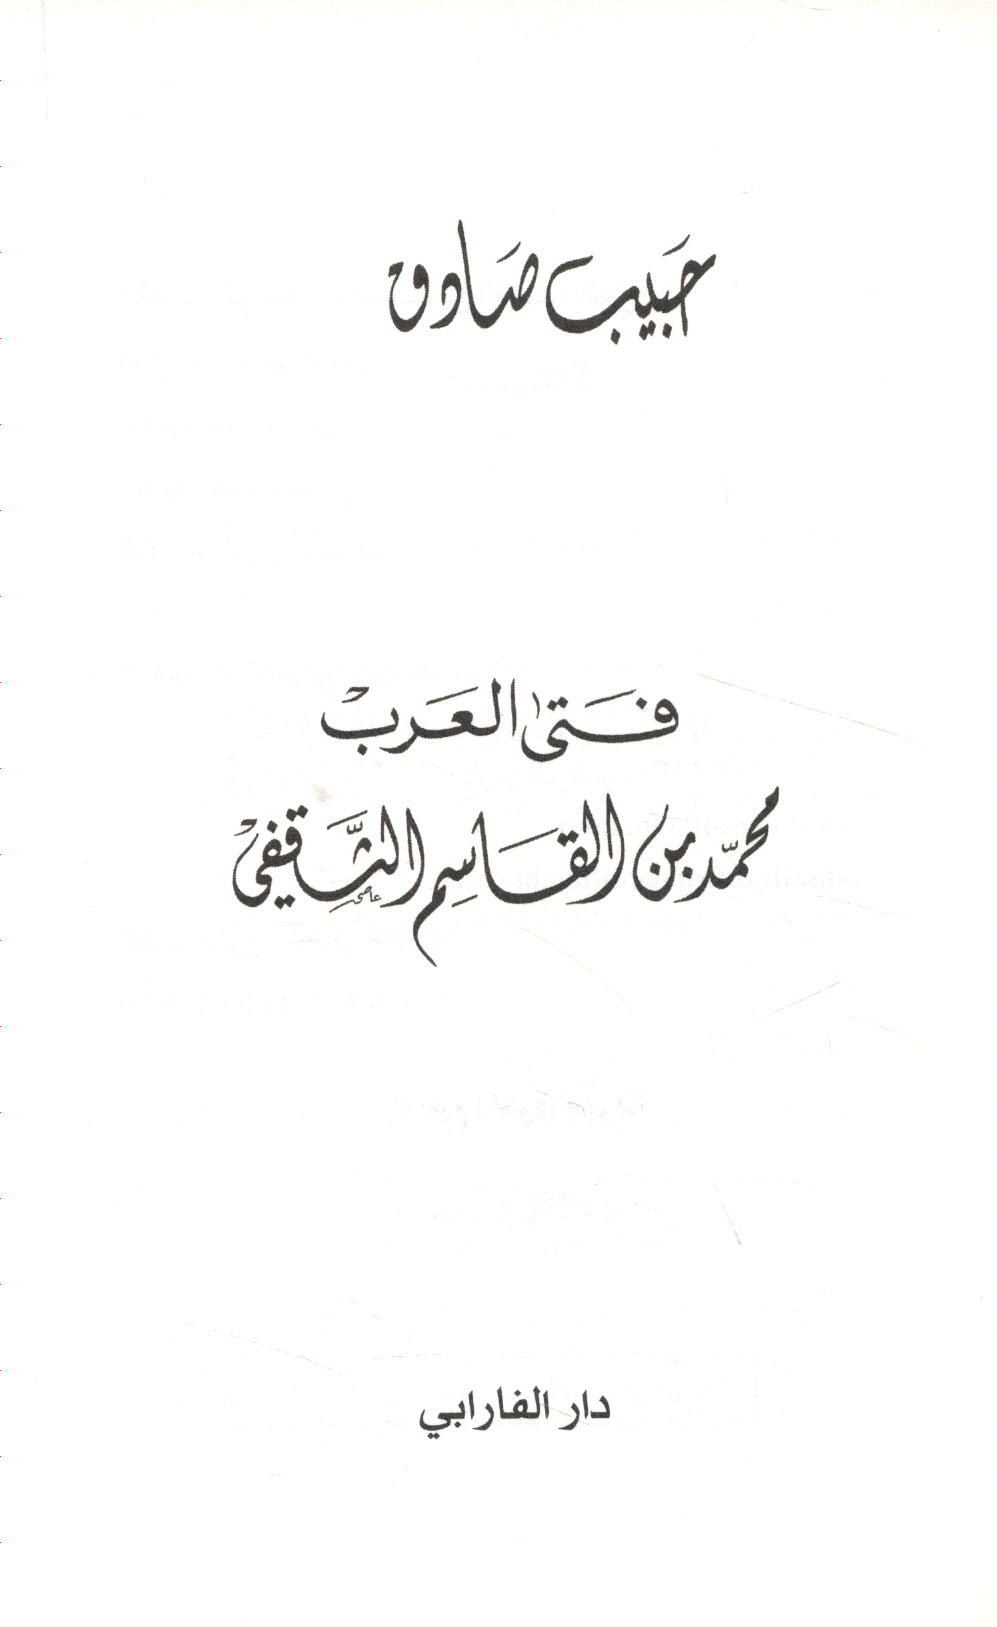 حبيب صادق
فتى العرب
محمّد بن القاسم الثّقفي
دار الفارابي